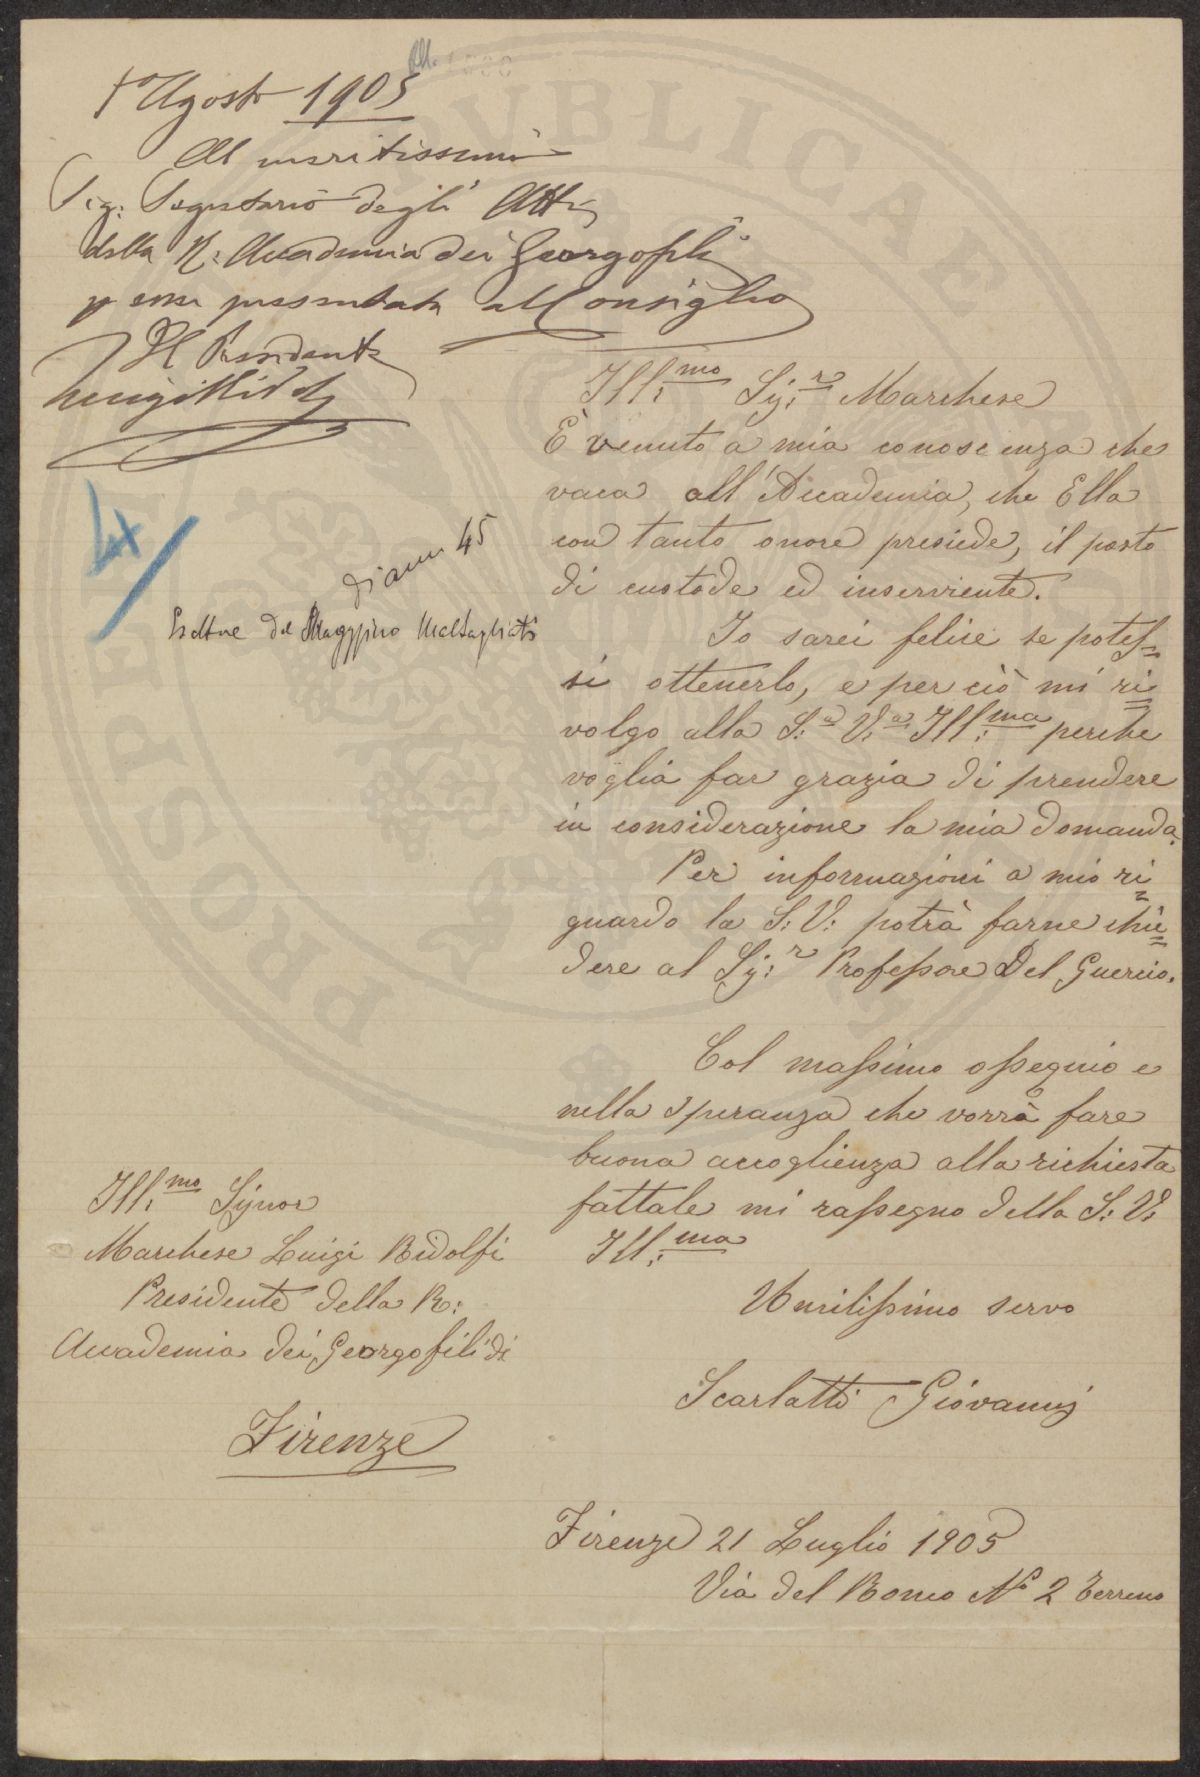 1° Agosto 1905
Al meritissimo
Sig: Segretario degli Atti
della R: Accademia dei Georgofili
p essere presentata al Consiglio
Il Presidente
Luigi Ridolfi
4
di anni 45
Maltagliati
Ill:mo Sig:r Marchese
È venuto a mia conoscenza che
vaca all'Accademia, che Ella
con tanto onore presiede, il posto
di custode ed inserviente.
Io sarei felice se potes=
si ottenerlo, e per ciò mi ri
volgo alla S:a V:a Ill:ma perche
voglia far grazia di prendere
in considerazione la mia domanda.
Per informazioni a mio ri
guardo la S: V: potrà farne chie
dere al Sig:r Professore Del Guercio.
Col massimo ossequio e
nella speranza che vorrà fare
buona accoglienza alla richiesta
fattale mi rassegno della S: V:
Ill:ma
Umilissimo servo
Scarlatti Giovanni
Firenze 21 Luglio 1905
Via del Romeo No 2 Terreno
Ill:mo Signor
Marchese Luigi Ridolfi
Presidente della R:
Accademia dei Georgofili di
Firenze
PROSPERITATI PUBLICAE